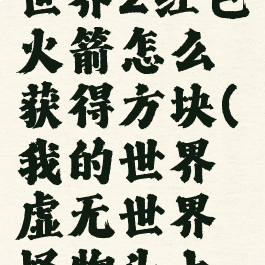 世界2红色
火箭怎么
获得方块(
我的世界
虚无世界
怪物头上